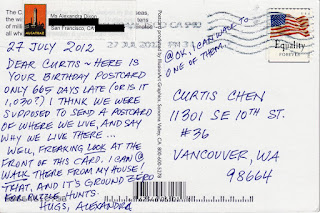 The C
Ms Alexandra Dixon
San Francisco, CA
27 JUL 2012
27 JULY 2012
DEAR CURTIS ~ HERE IS
YOUR BIRTHDAY POSTCARD
ONLY 665 DAYS LATE (OR IS IT
1,030?) I THINK WE WERE
SUPPOSED TO SEND A POSTCARD
OF WHERE WE LIVE, AND SAY
WHY WE LIVE THERE ...
WELL, FREAKING LOOK AT THE
FRONT OF THIS CARD. I CAN @
WALK THERE FROM MY HOUSE!
THAT, AND IT'S GROUND ZERO
FOR PUZZLE HUNTS.
HUGS, ALEXANDRA
@ OK, I CAN WALK TO
ONE OF THEM.
Equality
FOREVER
CURTIS CHEN
11301 SE 10TH ST.
#36
VANCOUVER, WA
98664